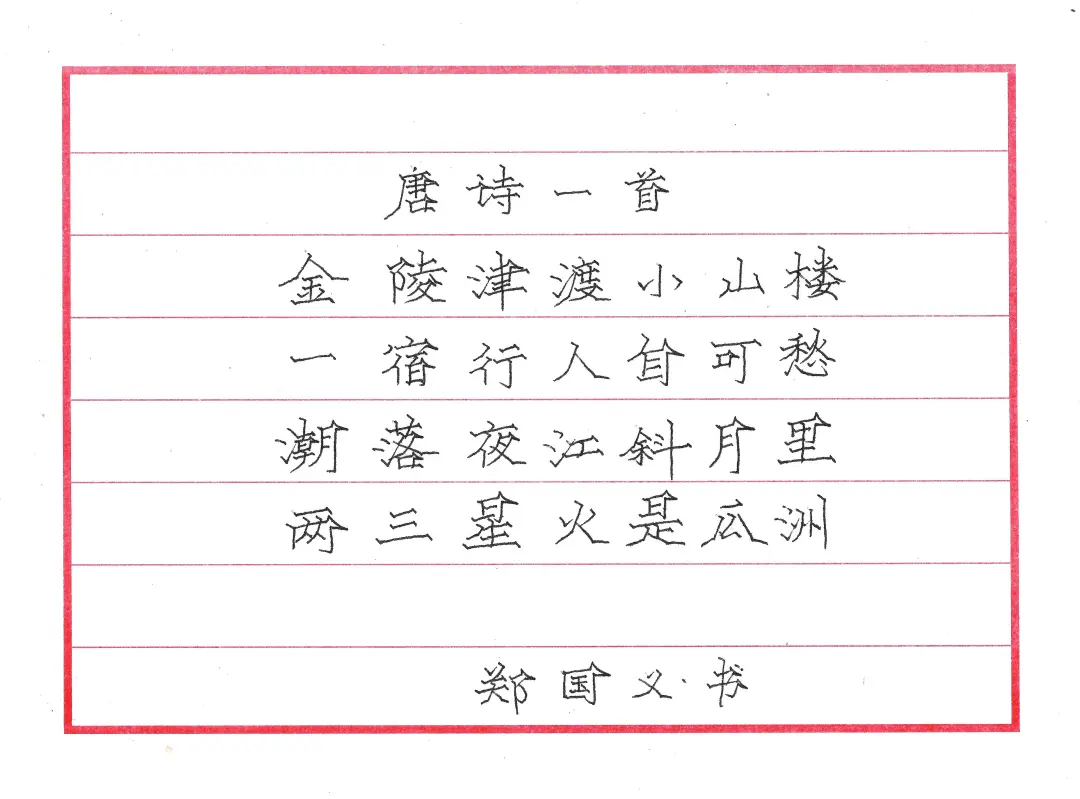 唐诗一首
金陵津渡小山楼
一宿行人自可愁
潮落夜江斜月里
两三星火是瓜洲
郑国义·书